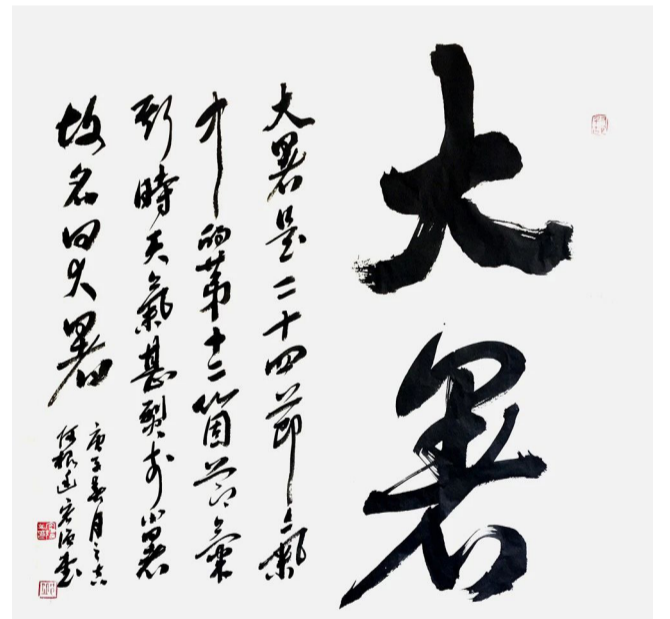 大暑
大暑是二十四節氣
中的第十二箇節氣
斯時天氣甚烈於小暑
故名曰大暑
庚子 月之吉
何根 書